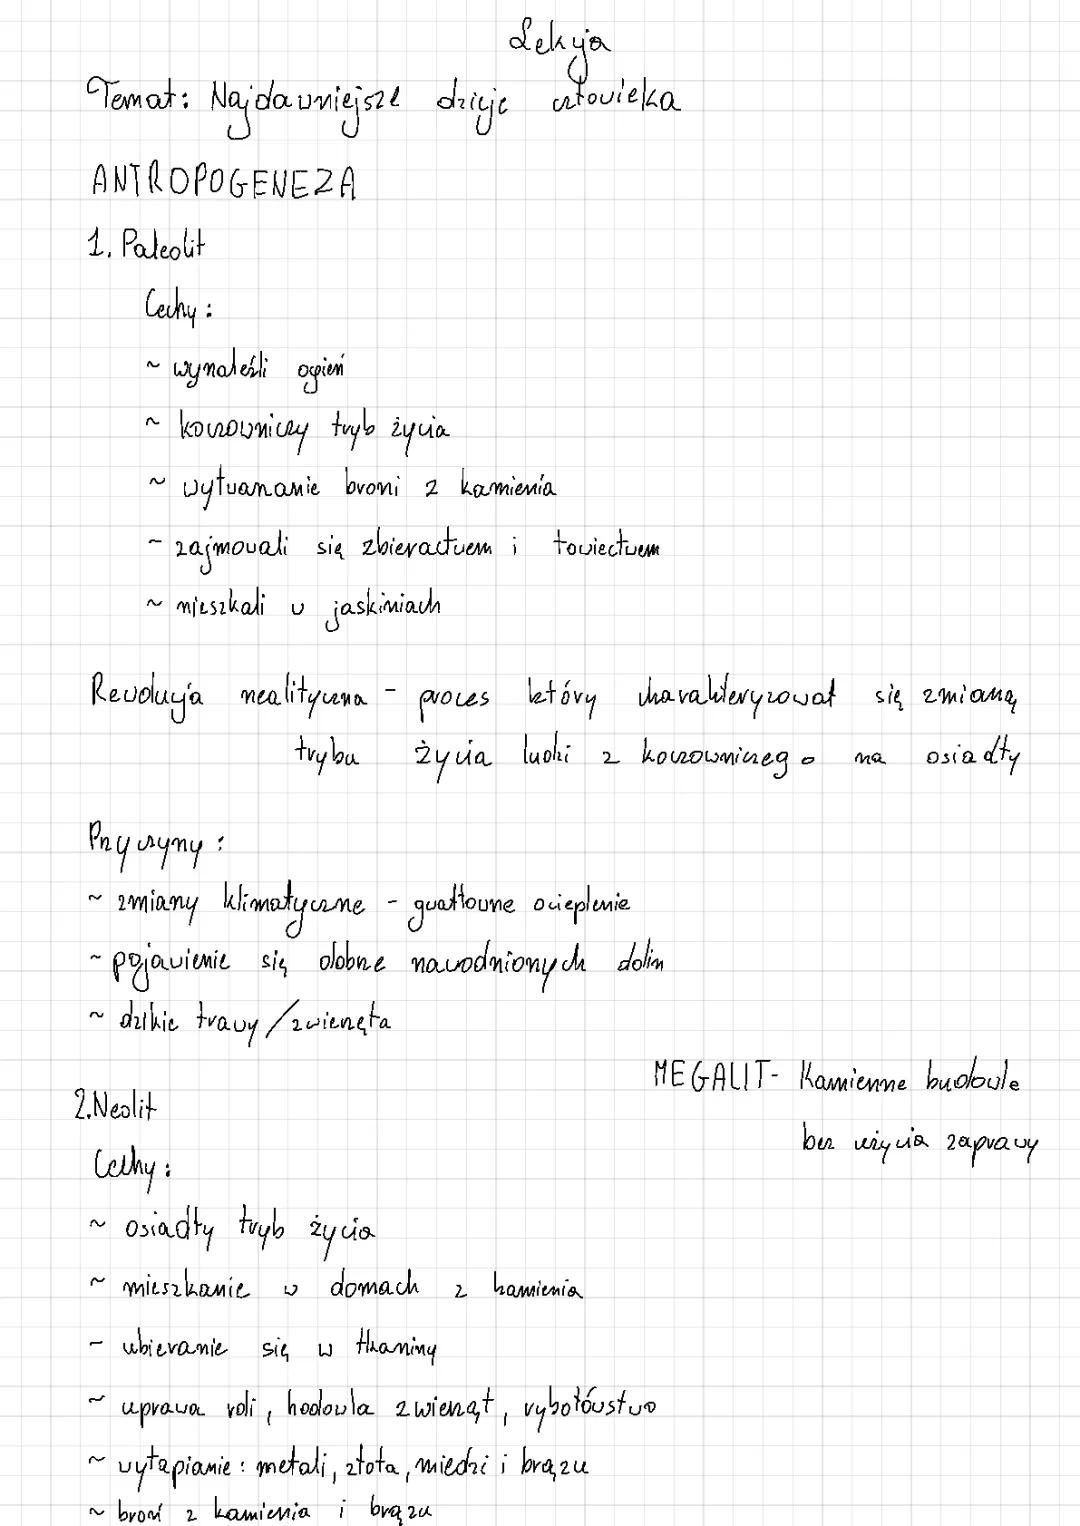 Lekcja
Temat: Najdawniejsze dzieje człowieka
ANTROPOGENEZA
1. Paleolit
Cechy:
~ wynaleźli ogień
~ koczowniczy tryb życia
~ wytwarzanie broni z kamienia
~ zajmowali się zbieractwem i łowiectwem
~ mieszkali w jaskiniach
Rewolucja nealityczna - proces który charakteryzował się zmianą
trybu życia ludzi z koczowniczego na osiadły
Przyczyny:
~ zmiany klimatyczne - gwałtowne ocieplenie
~ pojawienie się dobrze nawodnionych dolin
~ dzikie trawy/zwierzęta
MEGALIT- Kamienne budowle
bez użycia zaprawy
2.Neolit
Cechy:
~ osiadły tryb życia
~ mieszkanie w domach z kamienia
- ubieranie się w tkaniny
~ uprawa roli, hodowla zwierząt, rybołówstwo
~ wytapianie: metali, złota, miedzi i brązu
~ broń z kamienia i brązu